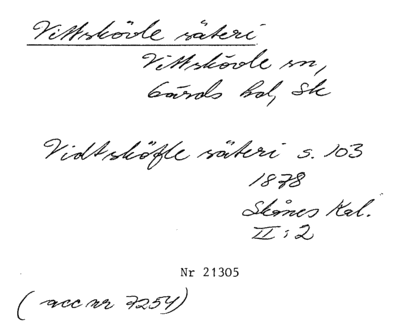 Vittskövle säteri
Vittskövle sn,
Gärds hd, Sk
Vidtsköfle säteri s. 103
1878
Skånes Kal.
II:2
Nr 21305
(acc nr 7254)